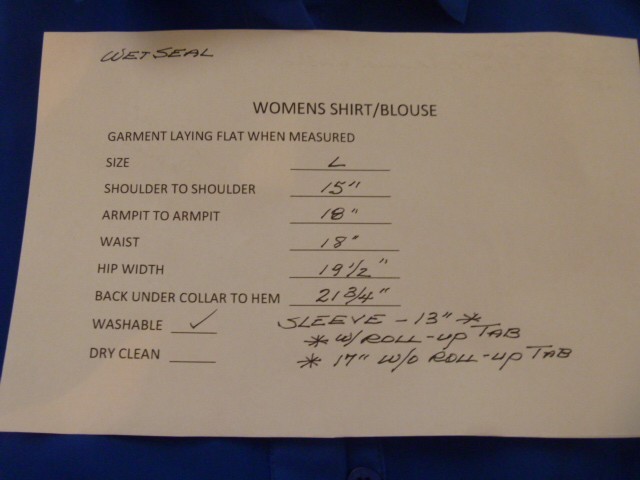 WET SEAL
WOMENS SHIRT/BLOUSE
GARMENT LAYING FLAT WHEN MEASURED
SIZE L
SHOULDER TO SHOULDER 15"
ARMPIT TO ARMPIT 18"
WAIST 18"
HIP WIDTH 19 1/2"
BACK UNDER COLLAR TO HEM 21 3/4"
WASHABLE ✓ SLEEVE - 13" *
* W/ROLL-up TAB
DRY CLEAN ____ * 17" W/O ROLL-up TAB